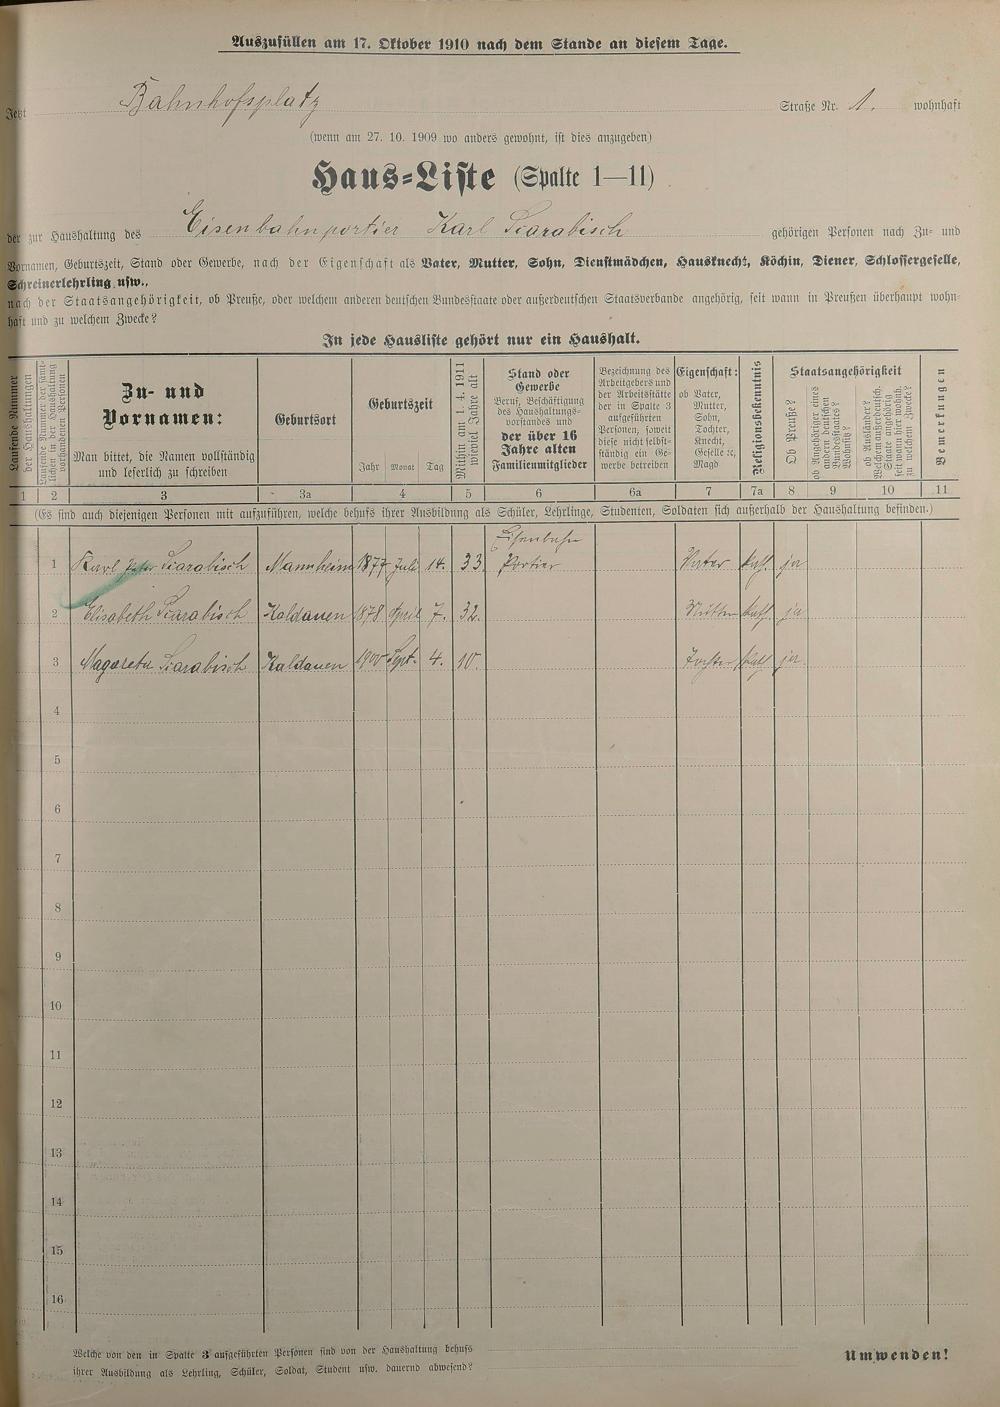 Auszufüllen am 17. Oktober 1910 nach dem Stande an diesem Tage.
Jetzt Bahnhofsplatz Straße Nr. 1. wohnhaft
(wenn am 27. 10. 1909 wo anders gewohnt, ist dies anzugeben)
Haus-Liste (Spalte 1—11)
der zur Haushaltung des Eisenbahnportier Karl Scarabisch gehörigen Personen nach Zu- und
Vornamen, Geburtszeit, Stand oder Gewerbe, nach der Eigenschaft als Vater, Mutter, Sohn, Dienstmädchen, Hausknecht, Köchin, Diener, Schlossergeselle,
Schreinerlehrling usw.,
nach der Staatsangehörigkeit, ob Preuße, oder welchem anderen deutschen Bundesstaate oder außerdeutschen Staatsverbande angehörig, seit wann in Preußen überhaupt wohn-
haft und zu welchem Zwecke?
In jede Hausliste gehört nur ein Haushalt.
Laufende Nummer
der Haushaltungen
Laufende Nummer der sämt-
lichen in der Haushaltung
vorhandenen Personen
Zu- und
Vornamen:
Man bittet, die Namen vollständig
und leserlich zu schreiben
Geburtsort
Geburtszeit
Jahr Monat Tag
Mithin am 1. 4. 1911
wieviel Jahre alt
Stand oder
Gewerbe
Beruf, Beschäftigung
des Haushaltungs-
vorstandes und
der über 16
Jahre alten
Familienmitglieder
Bezeichnung des
Arbeitgebers und
der Arbeitsstätte
der in Spalte 3
aufgeführten
Personen, soweit
diese nicht selbst-
ständig ein Ge-
werbe betreiben
Eigenschaft:
ob Vater,
Mutter,
Sohn,
Tochter,
Knecht,
Geselle ꝛc,
Magd
Religionsbekenntnis
Staatsangehörigkeit
Ob Preuße?
ob Angehöriger eines
andern deutschen
Bundesstaates?
Wohnsitz?
ob Ausländer?
Welchem außerdeutsch.
Staate angehörig
seit wann hier wohnh.
zu welchem Zwecke?
Bemerkungen
1 2 3 3a 4 5 6 6a 7 7a 8 9 10 11
(Es sind auch diejenigen Personen mit aufzuführen, welche behufs ihrer Ausbildung als Schüler, Lehrlinge, Studenten, Soldaten sich außerhalb der Haushaltung befinden.)
1 Karl Peter Scarabisch Mannheim 1877 Juli 14. 33. Eisenbahn Portier Vater kath. ja
2 Elisabeth Scarabisch Kaldauen 1878 April 7. 32. Mutter kath. ja
3 Magareta Scarabisch Kaldauen 1900 Sept. 4. 10. Tochter kath. ja
4
5
6
7
8
9
10
11
12
13
14
15
16
Welche von den in Spalte 3 aufgeführten Personen sind von der Haushaltung behufs
ihrer Ausbildung als Lehrling, Schüler, Soldat, Student usw. dauernd abwesend?
Umwenden!